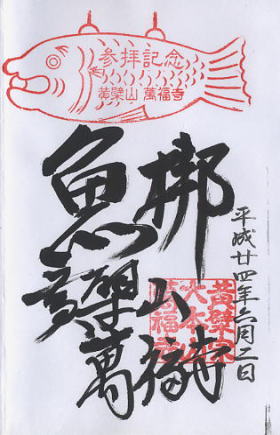 参拝記念
黄檗山 萬福寺
魚梆
黄檗山
萬福寺
黄檗宗
大本山
萬福寺
平成廿四年六月二日